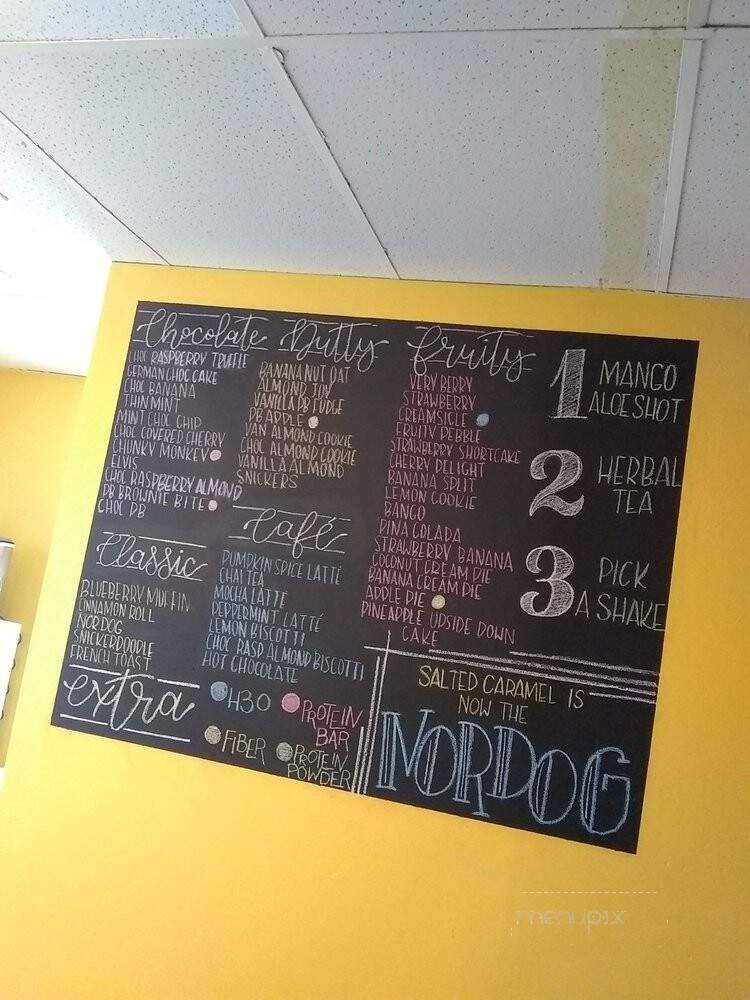 Chocolate
CHOC RASPBERRY TRUFFLE
GERMAN CHOC CAKE
CHOC BANANA
THIN MINT
MINT CHOC CHIP
CHOC COVERED CHERRY
CHUNKY MONKEY
ELVIS
CHOC RASPBERRY ALMOND
PB BROWNIE BITE
CHOC PB
Classic
BLUEBERRY MUFFIN
CINNAMON ROLL
NORDOG
SNICKERDOODLE
FRENCH TOAST
Nutty
BANANA NUT OAT
ALMOND JOY
VANILLA PB FUDGE
PB APPLE
VAN ALMOND COOKIE
CHOC ALMOND COOKIE
VANILLA ALMOND
SNICKERS
Café
PUMPKIN SPICE LATTÉ
CHAI TEA
MOCHA LATTÉ
PEPPERMINT LATTÉ
LEMON BISCOTTI
CHOC RASP ALMOND BISCOTTI
HOT CHOCOLATE
fruity
VERY BERRY
STRAWBERRY
CREAMSICLE
FRUITY PEBBLE
STRAWBERRY SHORTCAKE
CHERRY DELIGHT
BANANA SPLIT
LEMON COOKIE
BANGO
PINA COLADA
STRAWBERRY BANANA
COCONUT CREAM PIE
BANANA CREAM PIE
APPLE PIE
PINEAPPLE UPSIDE DOWN
CAKE
1 MANGO
ALOE SHOT
2 HERBAL
TEA
3 PICK
A SHAKE
extra
H3O
PROTEIN
BAR
FIBER
PROTEIN
POWDER
SALTED CARAMEL IS
NOW THE
NORDOG
menupix